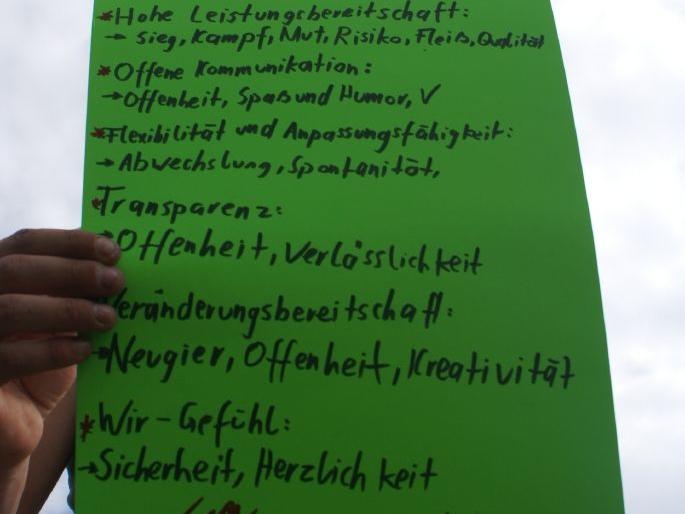 *Hohe Leistungsbereitschaft:
→ Sieg, Kampf, Mut, Risiko, Fleiß, Qualität
*Offene Kommunikation:
→ Offenheit, Spaß und Humor, V
*Flexibilität und Anpassungsfähigkeit:
→ Abwechslung, Spontanität,
*Transparenz:
Offenheit, Verlässlichkeit
Veränderungsbereitschaft:
→ Neugier, Offenheit, Kreativität
*Wir-Gefühl:
→ Sicherheit, Herzlichkeit